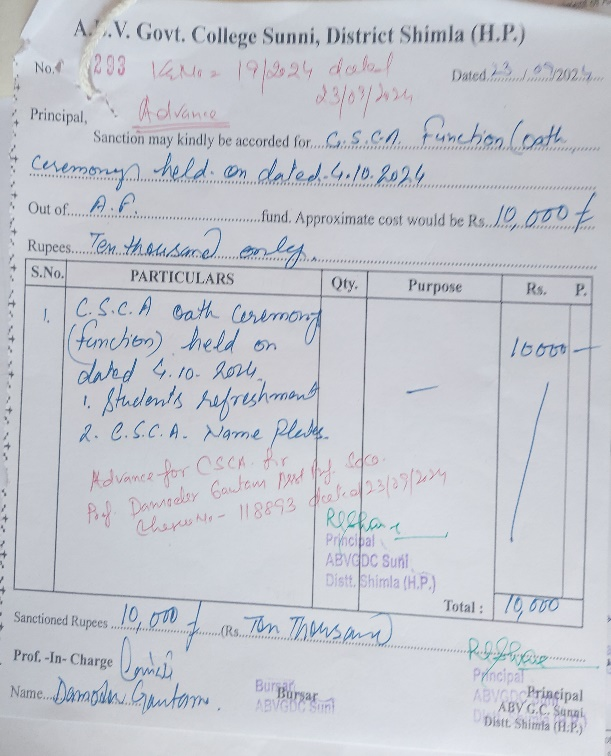 A.B.V. Govt. College Sunni, District Shimla (H.P.)
No. 293 V.No = 19/2024 dated
23/09/2024
Dated 23/09/2024
Advance
Principal,
Sanction may kindly be accorded for C.S.C.A. function (oath
ceremony) held on dated 4.10.2024
Out of A.F. fund. Approximate cost would be Rs. 10,000/-
Rupees Ten thousand only.
S.No. PARTICULARS Qty. Purpose Rs. P.
1. C.S.C.A oath Ceremony
(function) held on 10000 —
dated 4.10.2024
1. Students refreshment —
2. C.S.C.A. Name Plates.
Advance for CSCA
Prof. Damoder Gautam
Cheque No - 118893 dated 23/09/2024
Principal
ABVGDC Suni
Distt. Shimla (H.P.)
Total : 10,000
Sanctioned Rupees 10,000/- (Rs. Ten Thousand
Prof. -In- Charge
Name Damoder Gautam.
Bursar
Bursar
ABVGDC Suni
Principal
Principal
ABV G.C. Sunni
Distt. Shimla (H.P.)